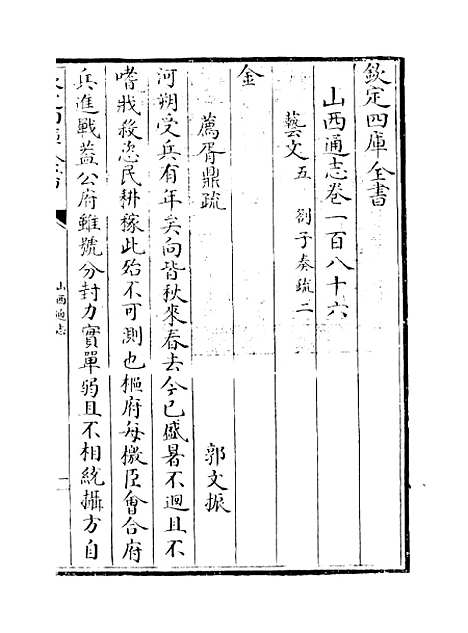 欽定四庫全書
山西通志卷一百八十六
藝文五 劄子奏疏二
金
薦胥鼎疏 郭文振
河朔受兵有年矣向皆秋來春去今已盛暑不迴且不
嗜戕殺恣民耕稼此殆不可測也樞府每檄臣會合府
兵進戰蓋公府雖號分封力實單弱且不相統攝方自
山西通志
一